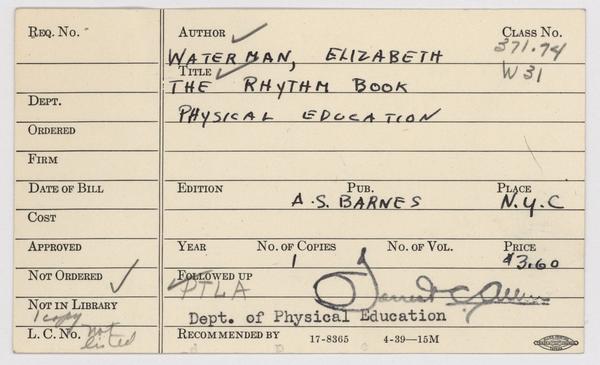 Req. No.
Author
Class No.
371.74
WATERMAN, ELIZABETH
Title
W31
THE RHYTHM BOOK
Dept.
PHYSICAL EDUCATION
Ordered
Firm
Date of Bill
Edition
Pub.
Place
A.S. BARNES
N.Y.C
Cost
Approved
Year
No. of Copies
No. of Vol.
Price
1
$3.60
Not Ordered
Followed up
PTLA
Forrest C. Allen
Not in Library
1 copy
Dept. of Physical Education
L.C. No. not listed
Recommended by
17-8365 4-39—15M